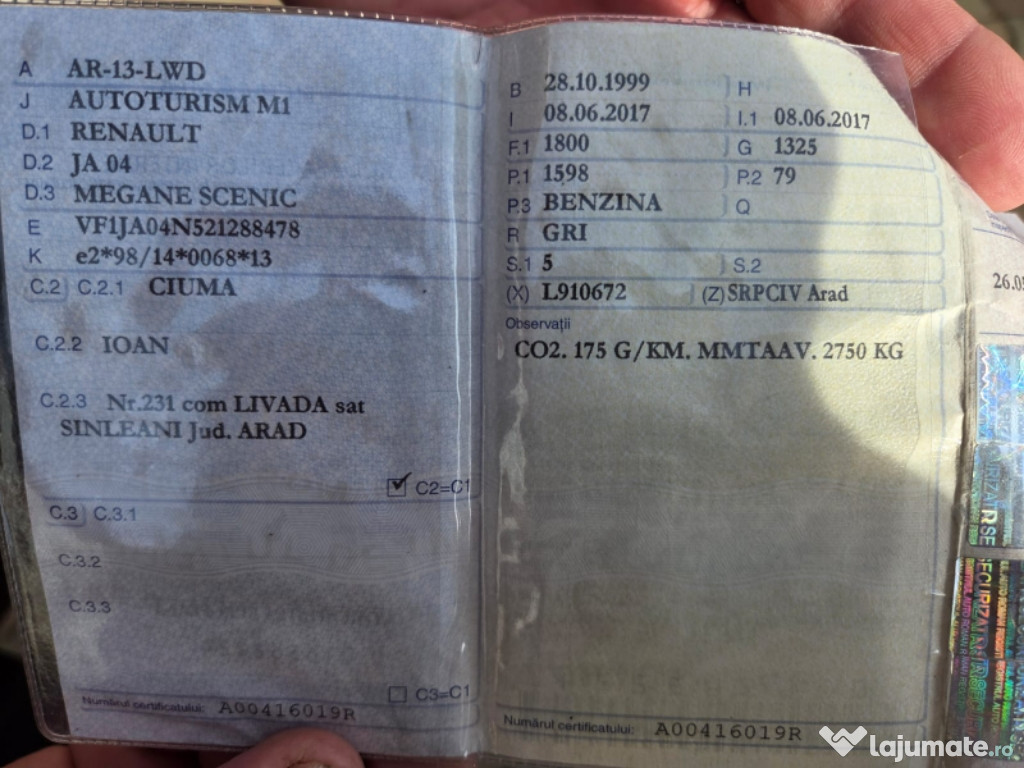 A AR-13-LWD
J AUTOTURISM M1
D.1 RENAULT
D.2 JA 04
D.3 MEGANE SCENIC
E VF1JA04N521288478
K e2*98/14*0068*13
C.2 C.2.1 CIUMA
C.2.2 IOAN
C.2.3 Nr.231 com LIVADA sat
SINLEANI Jud. ARAD
C2=C1
C.3 C.3.1
C.3.2
C.3.3
C3=C1
Numărul certificatului: A00416019R
B 28.10.1999 H
I 08.06.2017 I.1 08.06.2017
F.1 1800 G 1325
P.1 1598 P.2 79
P.3 BENZINA Q
R GRI
S.1 5 S.2
(X) L910672 (Z) SRPCIV Arad
Observații
CO2. 175 G/KM. MMTAAV. 2750 KG
Numărul certificatului: A00416019R
lajumate.ro